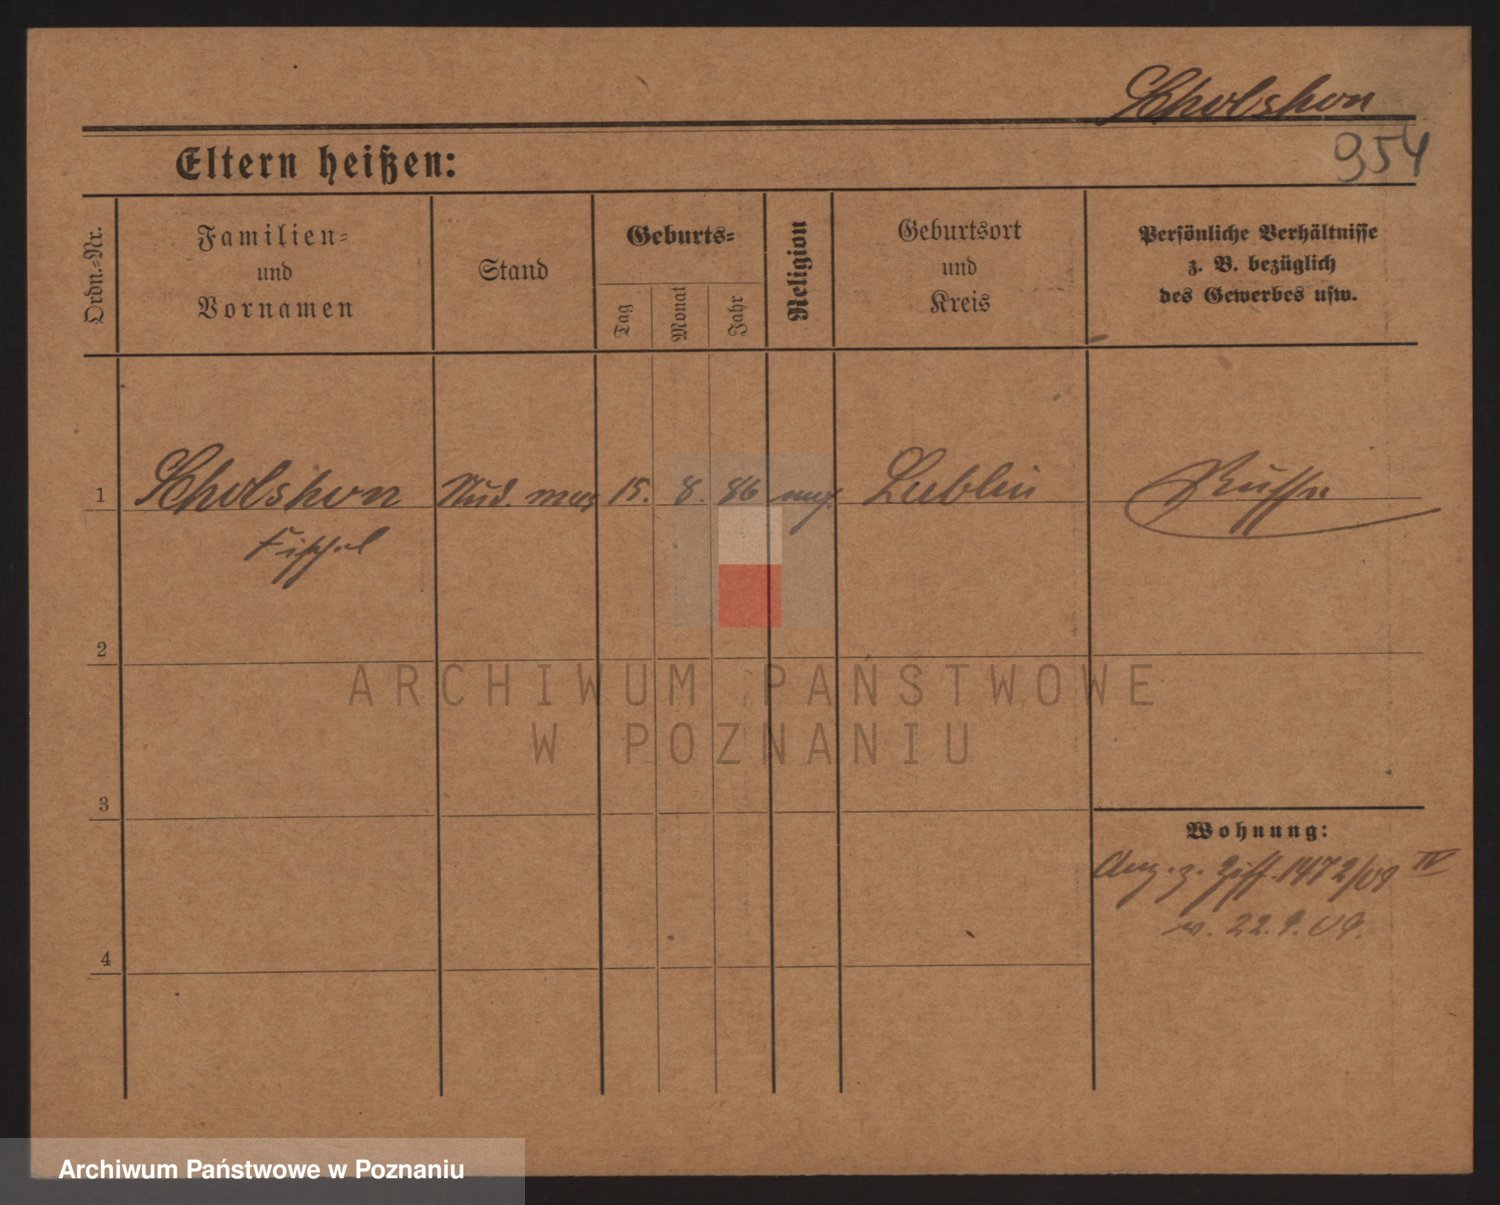 Scholshon
954
Eltern heißen:
Ordn.-Nr.
Familien-
und
Vornamen
Stand
Geburts-
Tag
Monat
Jahr
Religion
Geburtsort
und
Kreis
Persönliche Verhältnisse
z. B. bezüglich
des Gewerbes usw.
1 Scholshon Stud. 15. 8. 86 Lublin Russe
Fischel
2
ARCHIWUM PAŃSTWOWE
W POZNANIU
3
Wohnung:
Anz. z. Ziff. 1472/09 IV
v. 22.9.09.
4
Archiwum Państwowe w Poznaniu